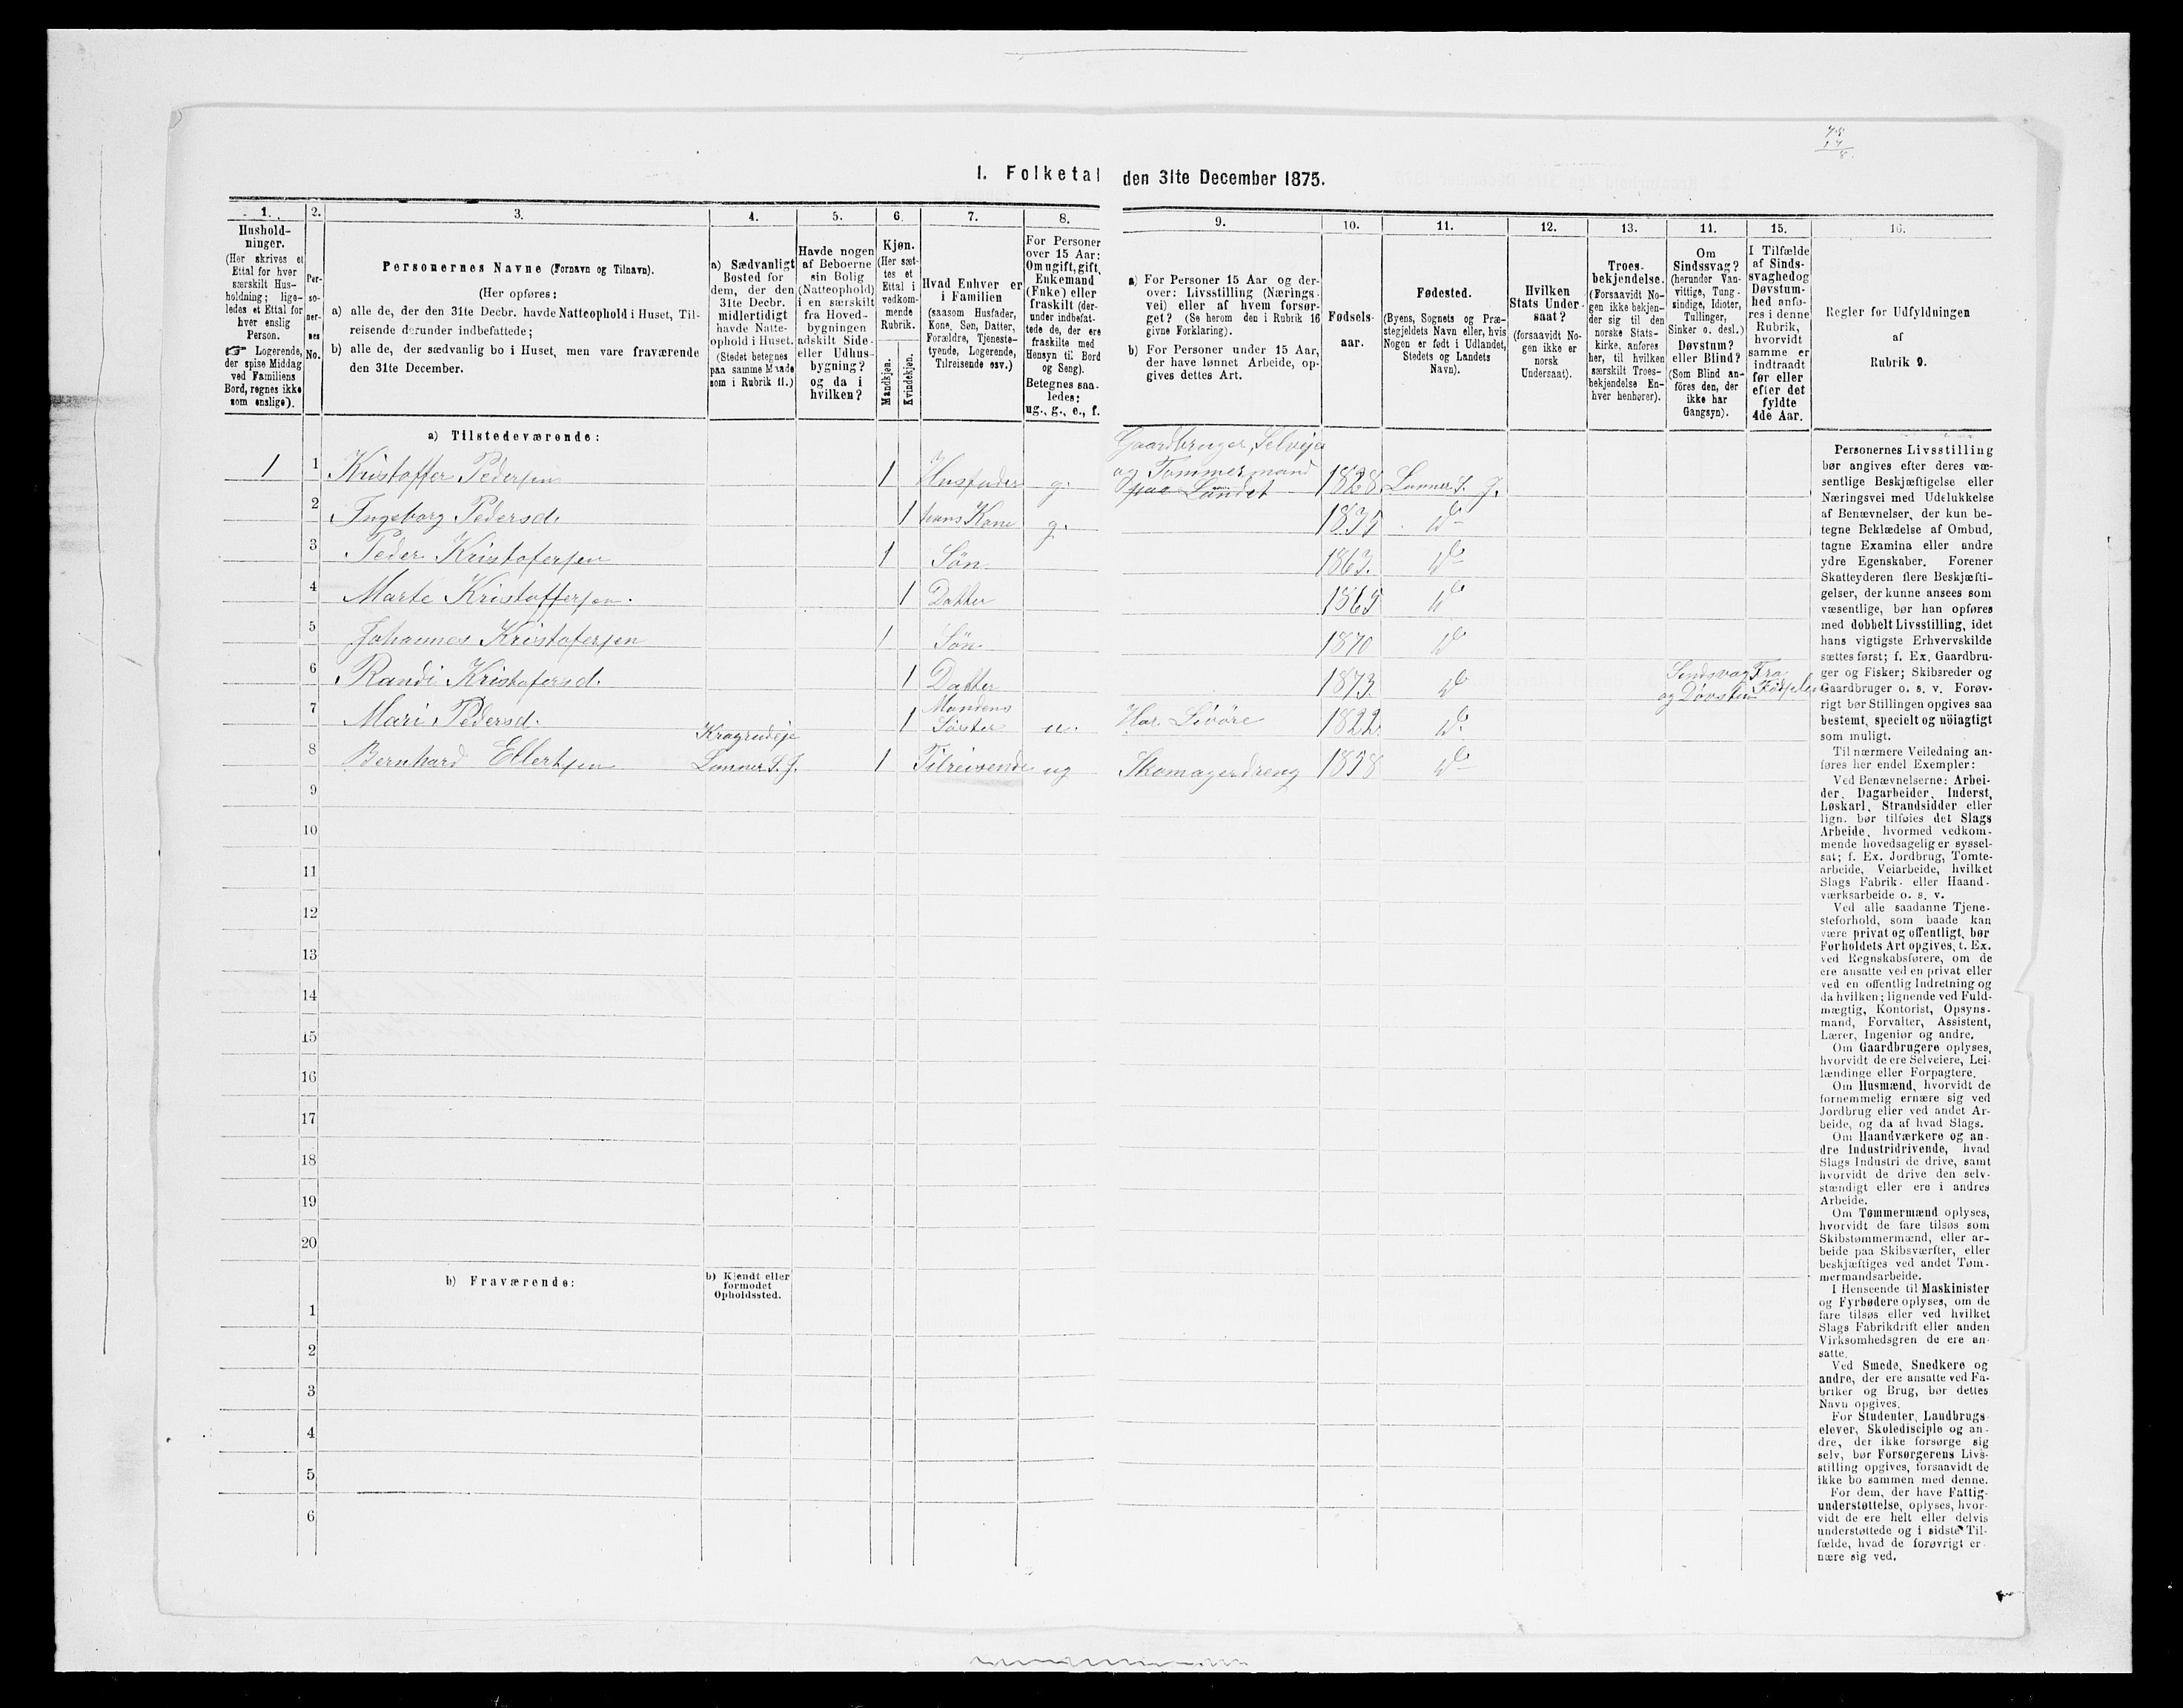 I. Folketal den 31te December 1875.
1. 2. 3. 4. 5. 6. 7. 8. 9. 10. 11. 12. 13. 14. 15. 16.
Hushold-
ninger.
(Her skrives et
Ettal for hver
særskilt Hus-
holdning; lige-
ledes et Ettal for
hver enslig
Person.
☞ Logerende,
der spise Middag
ved Familiens
Bord, regnes ikke
som enslige).
Per-
so-
ner-
nes
No.
Personernes Navne (Fornavn og Tilnavn).
(Her opføres:
a) alle de, der den 31te Decbr. havde Natteophold i Huset, Til-
reisende derunder indbefattede;
b) alle de, der sædvanlig bo i Huset, men vare fraværende
den 31te December.
a) Sædvanligt
Bosted for
dem, der den
31te Decbr.
midlertidigt
havde Natte-
ophold i Huset.
(Stedet betegnes
paa samme Maade
som i Rubrik 11.)
Havde nogen
af Beboerne
sin Bolig
(Natteophold)
i en særskilt
fra Hoved-
bygningen
adskilt Side-
eller Udhus-
bygning?
og da i
hvilken?
Kjøn.
(Her sæt-
tes et
Ettal i
vedkom-
mende
Rubrik.
Mandkjøn.
Kvindekjøn.
Hvad Enhver er
i Familien
(saasom Husfader,
Kone, Søn, Datter,
Forældre, Tjeneste-
tyende, Logerende,
Tilreisende osv.)
For Personer
over 15 Aar:
Om ugift, gift,
Enkemand
(Enke) eller
fraskilt (der-
under indbefat-
tede de, der ere
fraskilte med
Hensyn til Bord
og Seng).
Betegnes saa-
ledes:
ug., g., e., f.
a) For Personer 15 Aar og der-
over: Livsstilling (Nærings-
vei) eller af hvem forsør-
get? (Se herom den i Rubrik 16
givne Forklaring).
b) For Personer under 15 Aar,
der have lønnet Arbeide, op-
gives dettes Art.
Fødsels-
aar.
Fødested.
(Byens, Sognets og Præ-
stegjeldets Navn eller, hvis
Nogen er født i Udlandet,
Stedets og Landets
Navn).
Hvilken
Stats Under-
saat?
(forsaavidt No-
gen ikke er
norsk
Undersaat).
Troes-
bekjendelse.
(Forsaavidt No-
gen ikke bekjen-
der sig til den
norske Stats-
kirke, anføres
her, til hvilken
særskilt Troes-
bekjendelse En-
hver henhører).
Om
Sindssvag?
(herunder Van-
vittige, Tung-
sindige, Idioter,
Tullinger,
Sinker o. desl.)
Døvstum?
eller Blind?
(Som Blind an-
föres den, der
ikke har
Gangsyn).
I Tilfælde
af Sinds-
svaghed og
Døvstum-
hed anfø-
res i denne
Rubrik,
hvorvidt
samme er
indtraadt
før eller
efter det
fyldte
4de Aar.
Regler for Udfyldningen
af
Rubrik 9.
a) Tilstedeværende:
Gaardbruger, Selveier
og Tømmermand
1 1 Kristoffer Pedersen 1 Husfader g. paa Landet 1828 Lunner S. J.
2 Ingeborg Pedersd. 1 hans Kone g. 1835 do
3 Peder Kristofersen 1 Søn 1863. do
4 Marte Kristoffersen. 1 Datter 1865 do
5 Johannes Kristofersen 1 Søn 1870 do
6 Randi Kristofersd. 1 Datter 1873 do Sindsvag og Døvstum Fra Fødselen
7 Mari Pedersd. 1 Mandens Søster u. Har Livöre 1822 do
8 Bernhard Ellertsen Kragrudeje Lunner S. J. 1 Tilreisende ug Skomagerdreng 1858 do
9
10
11
12
13
14
15
16
17
18
19
20
b) Fraværende:
b) Kjendt eller
formodet
Opholdssted.
1
2
3
4
5
6
Personernes Livsstilling
bør angives efter deres væ-
sentlige Beskjæftigelse eller
Næringsvei med Udelukkelse
af Benævnelser, der kun be-
tegne Beklædelse af Ombud,
tagne Examina eller andre
ydre Egenskaber. Forener
Skatteyderen flere Beskjæfti-
gelser, der kunne ansees som
væsentlige, bør han opføres
med dobbelt Livsstilling, idet
hans vigtigste Erhvervskilde
sættes først; f. Ex. Gaardbru-
ger og Fisker; Skibsreder og
Gaardbruger o. s. v. Forøv-
rigt bør Stillingen opgives saa
bestemt, specielt og nöiagtigt
som muligt.
Til nærmere Veiledning an-
føres her endel Exempler:
Ved Benævnelserne: Arbei-
der, Dagarbeider, Inderst,
Løskarl, Strandsidder eller
lign. bør tilføies det Slags
Arbeide, hvormed vedkom-
mende hovedsagelig er syssel-
sat; f. Ex. Jordbrug, Tomte-
arbeide, Veiarbeide, hvilket
Slags Fabrik- eller Haand-
værksarbeide o. s. v.
Ved alle saadanne Tjene-
steforhold, som baade kan
være privat og offentligt, bør
Forholdets Art opgives, t. Ex.
ved Regnskabsførere, om de
ere ansatte ved en privat eller
ved en offentlig Indretning og
da hvilken; lignende ved Fuld-
mægtig, Kontorist, Opsyns-
mand, Forvalter, Assistent,
Lærer, Ingeniør og andre.
Om Gaardbrugere oplyses,
hvorvidt de ere Selveiere, Lei-
lændinge eller Forpagtere.
Om Husmænd, hvorvidt de
fornemmelig ernære sig ved
Jordbrug eller ved andet Ar-
beide, og da af hvad Slags.
Om Haandværkere og an-
dre Industridrivende, hvad
Slags Industri de drive, samt
hvorvidt de drive den selv-
stændigt eller ere i andres
Arbeide.
Om Tømmermænd oplyses,
hvorvidt de fare tilsøs som
Skibstømmermænd, eller ar-
beide paa Skibsværfter, eller
beskjæftiges ved andet Tøm-
mermandsarbeide.
I Henseende til Maskinister
og Fyrbødere oplyses, om de
fare tilsøs eller ved hvilket
Slags Fabrikdrift eller anden
Virksomhedsgren de ere an-
satte.
Ved Smede, Snedkere og
andre, der ere ansatte ved Fa-
briker og Brug, bør dettes
Navn opgives.
For Studenter, Landbrugs-
elever, Skoledisciple og an-
dre, der ikke forsørge sig
selv, bør Forsørgerens Livs-
stilling opgives, forsaavidt de
ikke bo sammen med denne.
For dem, der have Fattig-
understøttelse, oplyses, hvor-
vidt de ere helt eller delvis
understøttede og i sidste Til-
fælde, hvad de forøvrigt er-
nære sig ved.